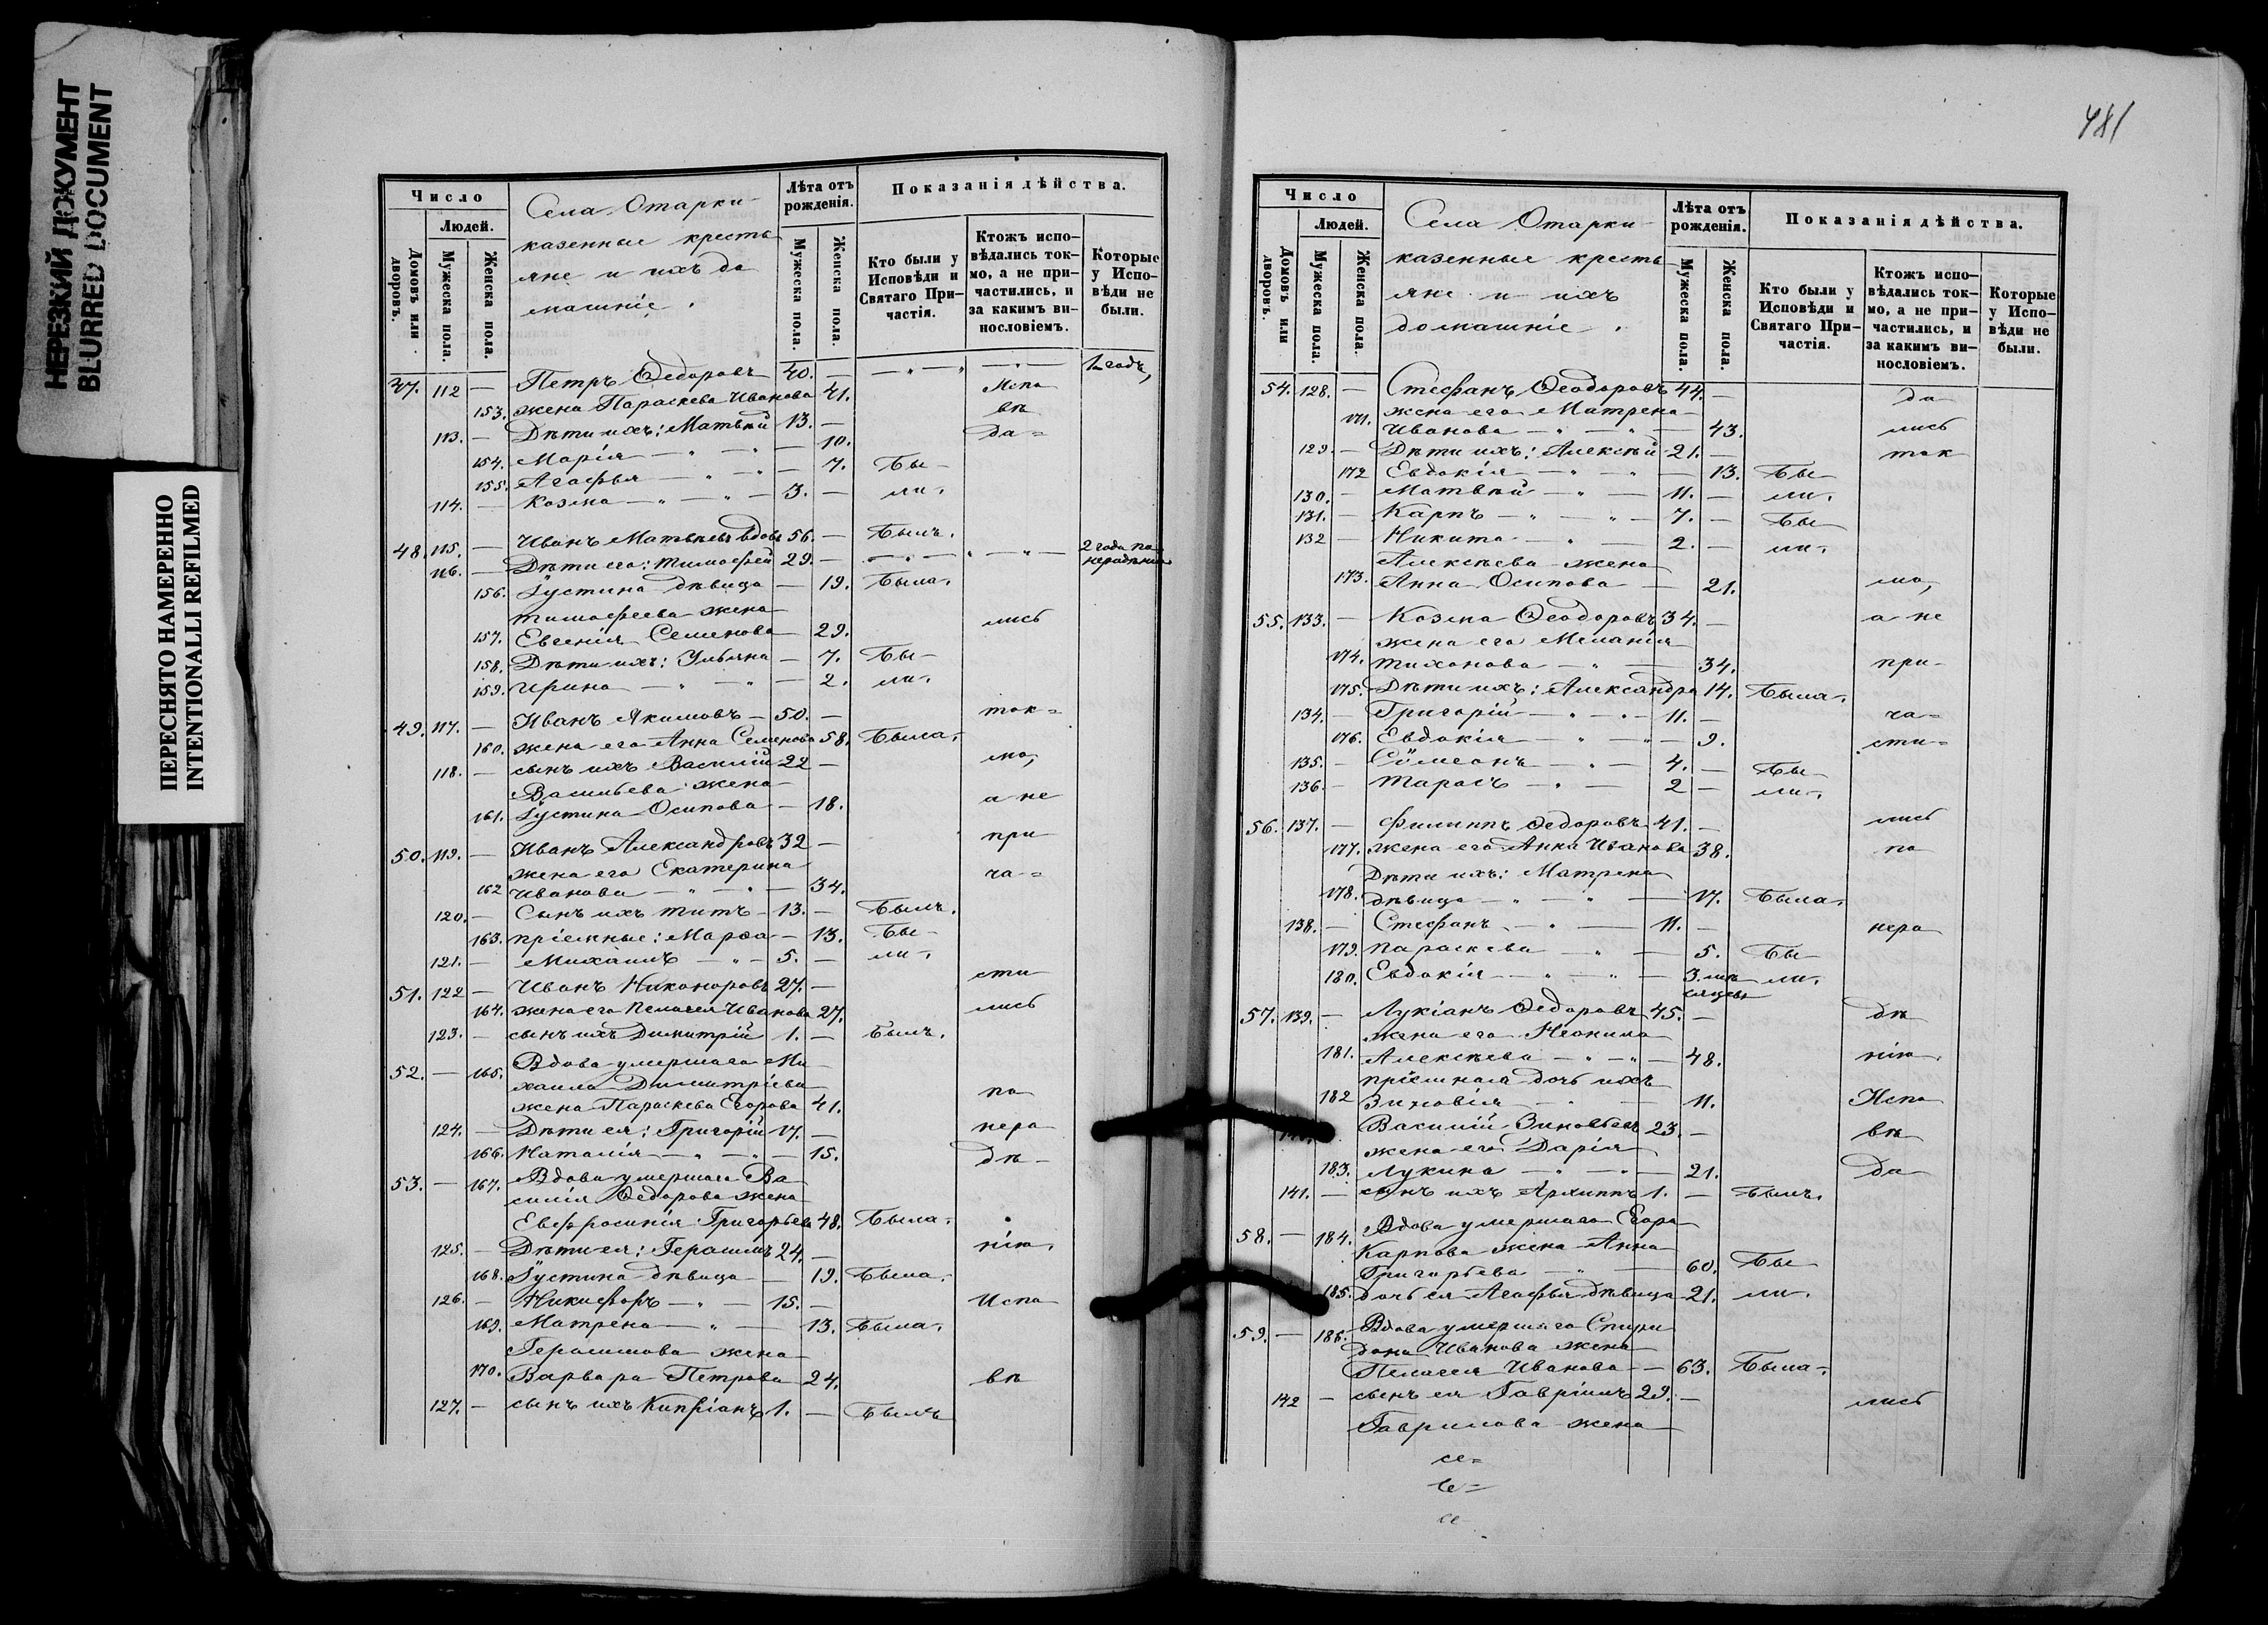 НЕРЕЗКИЙ ДОКУМЕНТ
BLURRED DOCUMENT
ПЕРЕСНЯТО НАМЕРЕННО
INTENTIONALLI REFILMED
Число
Людей.
Домовъ или дворовъ.
Мужеска пола.
Женска пола.
Села Отарки
казенные кресть
яне и ихъ до
машніе.
Лѣта отъ рожденія.
Мужеска пола.
Женска пола.
Показанія дѣйства.
Кто были у Исповѣди и Святаго При-частія.
Ктожъ испо-вѣдались ток-мо, а не при-частились, и за какимъ ви-нословіемъ.
Которые у Испо-вѣди не были.
47. 112 — Петръ Ѳедоровъ 40. — — „ — „ — „ — 1 годъ,
153. жена Параскева Иванова 41. Испо
113. — Дѣти ихъ: Матвѣй 13. — вѣ
154. Марія — „ — „ — 10. да=
155. Агафья — „ — „ — 7. Бы-
114. — Козма — „ — „ — 3. — ли.
48. 115. — Иванъ Матвѣевъ вдовъ 56. — Былъ.
116. — Дѣти его: Тимофей 29. — — „ — „ — „ — 2 года по нерадѣнію
156. Іустина дѣвица — 19. Была.
Тимофеева жена
157. Евгенія Семенова — 29. лись
158. Дѣти ихъ: Ульяна — 7. Бы-
159. Ирина — „ — „ — 2. ли.
49. 117. — Иванъ Якимовъ — 50. — ток=
160. жена его Анна Семенова 58. Была.
118. — сынъ ихъ Василій 22 — мо,
Васильева жена
161. Іустина Осипова — 18. а не
50. 119. — Иванъ Александровъ 32 — при
жена его Екатерина
162 Иванова — „ — „ — 34. ча=
120. — Сынъ ихъ Титъ — 13. — Былъ.
163. пріемные: Марѳа — 13. Бы-
121. — Михаилъ — „ — 5. — ли.
51. 122 — Иванъ Никаноровъ 27. — сти
164. жена его Пелагея Иванова 27. лись
123. — сынъ ихъ Димитрій 1. — Былъ.
52. — 165. Вдова умершаго Ми
хаила Димитріева
жена Параскева Егорова 41. по
124. — Дѣти ея: Григорій 17. — нера
166. Наталія — „ — „ — 15. дѣ-
53. — 167. Вдова умершаго Ва
силія Ѳедорова жена
Евфросинія Григорьева 48. Была.
125. — Дѣти ея: Герасимъ 24. — нію.
168. Іустина дѣвица — 19. Была.
126. — Никифоръ — „ — 15. — Испо
169. Матрена — „ — 13. Была.
Герасимова жена
170. Варвара Петрова 24. вѣ
127. — сынъ ихъ Кипріанъ 1. — Былъ
481
Число
Людей.
Домовъ или дворовъ.
Мужеска пола.
Женска пола.
Села Отарки
казенные кресть
яне и ихъ
домашніе.
Лѣта отъ рожденія.
Мужеска пола.
Женска пола.
Показанія дѣйства.
Кто были у Исповѣди и Святаго При-частія.
Ктожъ испо-вѣдались ток-мо, а не при-частились, и за какимъ ви-нословіемъ.
Которые у Испо-вѣди не были.
54. 128. — Стефанъ Ѳеодоровъ 44. — да
жена его Матрена
171. Иванова — „ — „ — 43. лись
129. — Дѣти ихъ: Алексѣй 21. — ток
172 Евдокія — „ — „ — 13. Бы
130. — Матвѣй — „ — 11. — ли.
131. — Карпъ — „ — „ — 7. — Бы
132 — Никита — „ — 2. — ли.
Алексѣева жена
173. Анна Осипова — 21. мо,
55. 133. — Козма Ѳеодоровъ 34. — а не
жена его Меланія
174. Тихонова — „ — 34. при-
175. Дѣти ихъ: Александра 14. Была.
134. — Григорій — „ — „ — 11. — ча=
176. Евдокія — „ — „ — 9. сти=
135. — Сѵмеонъ — „ — 4. — Бы
136. — Тарасъ — „ — 2 — ли.
56. 137. — Филиппъ Ѳедоровъ 41. — лись
177. жена его Анна Иванова 38. по
Дѣти ихъ: Матрена
178. дѣвица — „ — „ — 17. Была.
138. — Стефанъ — „ — 11. — нера
179. Параскева — „ — 5. Бы
180. Евдокія — „ — „ — 3. мѣсяцевъ ли.
57. 139. — Лукіанъ Ѳедоровъ 45. — дѣ
жена его Неонила
181. Алексѣева — „ — „ — 48. нію.
пріемная дочь ихъ
182 Зиновія — „ — 11. Испо
Василій Зиновьевъ 23. — вѣ
жена его Дарія
183. Лукина — „ — „ — 21. да
141. — сынъ ихъ Архиппъ 1. — Былъ.
58. — 184. Вдова умершаго Егора
Карпова жена Анна
Григорьева — „ — 60. Бы
185. дочь ея Агафья дѣвица 21. ли.
59. — 186. Вдова умершаго Спири
дона Иванова жена
Пелагея Иванова — 63. Была.
142 — сынъ ея Гавріилъ 29. — лись
Гаврилова жена